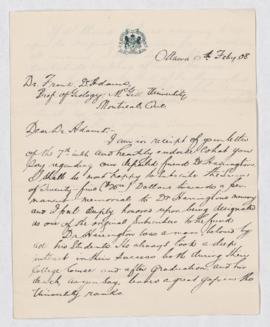 Ottawa Feby 08
Dr. Frank D. Adams
Prof of Geology McGill University
Montreal Que
Dear Dr Adams:
I am in receipt of your letter
of the 7th inst and heartily endorse what you
say regarding our friend Dr Harrington
I shall be most happy to subscribe the sum
of Twenty five Dollars towards a per-
manent memorial to Dr Harringtons memory
and I feel honored upon being designated
as one of the original subscribers to the fund.
Dr Harrington was a man beloved by
all his students. He always took a deep
interest in their success both during their
College Course and after graduation and his
death leaves a great gap in the
University ranks